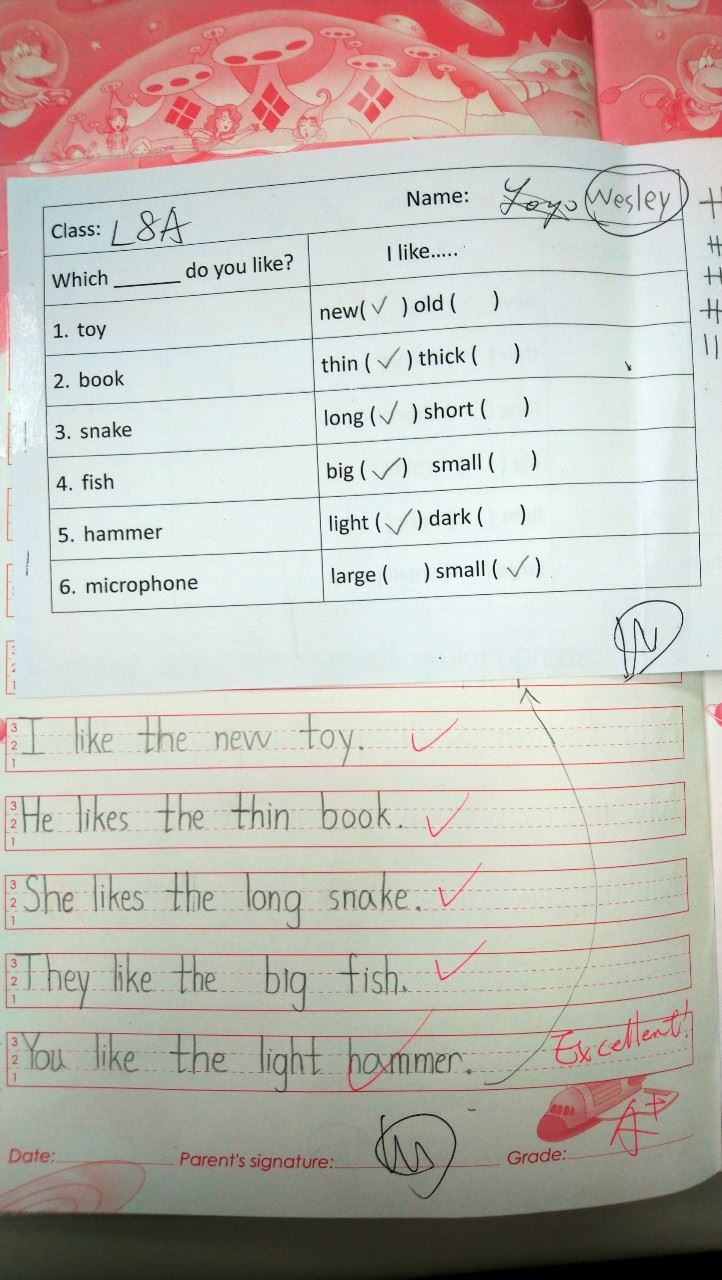 Name: Yoyo Wesley
Class: L8A
Which ______ do you like? I like.....
1. toy new(✓ ) old ( )
2. book thin (✓) thick ( )
3. snake long (✓ ) short ( )
4. fish big (✓) small ( )
5. hammer light (✓) dark ( )
6. microphone large ( ) small (✓)
3
2
1
I like the new toy. ✓
3
2
1
He likes the thin book. ✓
3
2
1
She likes the long snake. ✓
3
2
1
They like the big fish. ✓
3
2
1
You like the light hammer. ✓
Excellent!
A+
Date: Parent's signature: Grade: